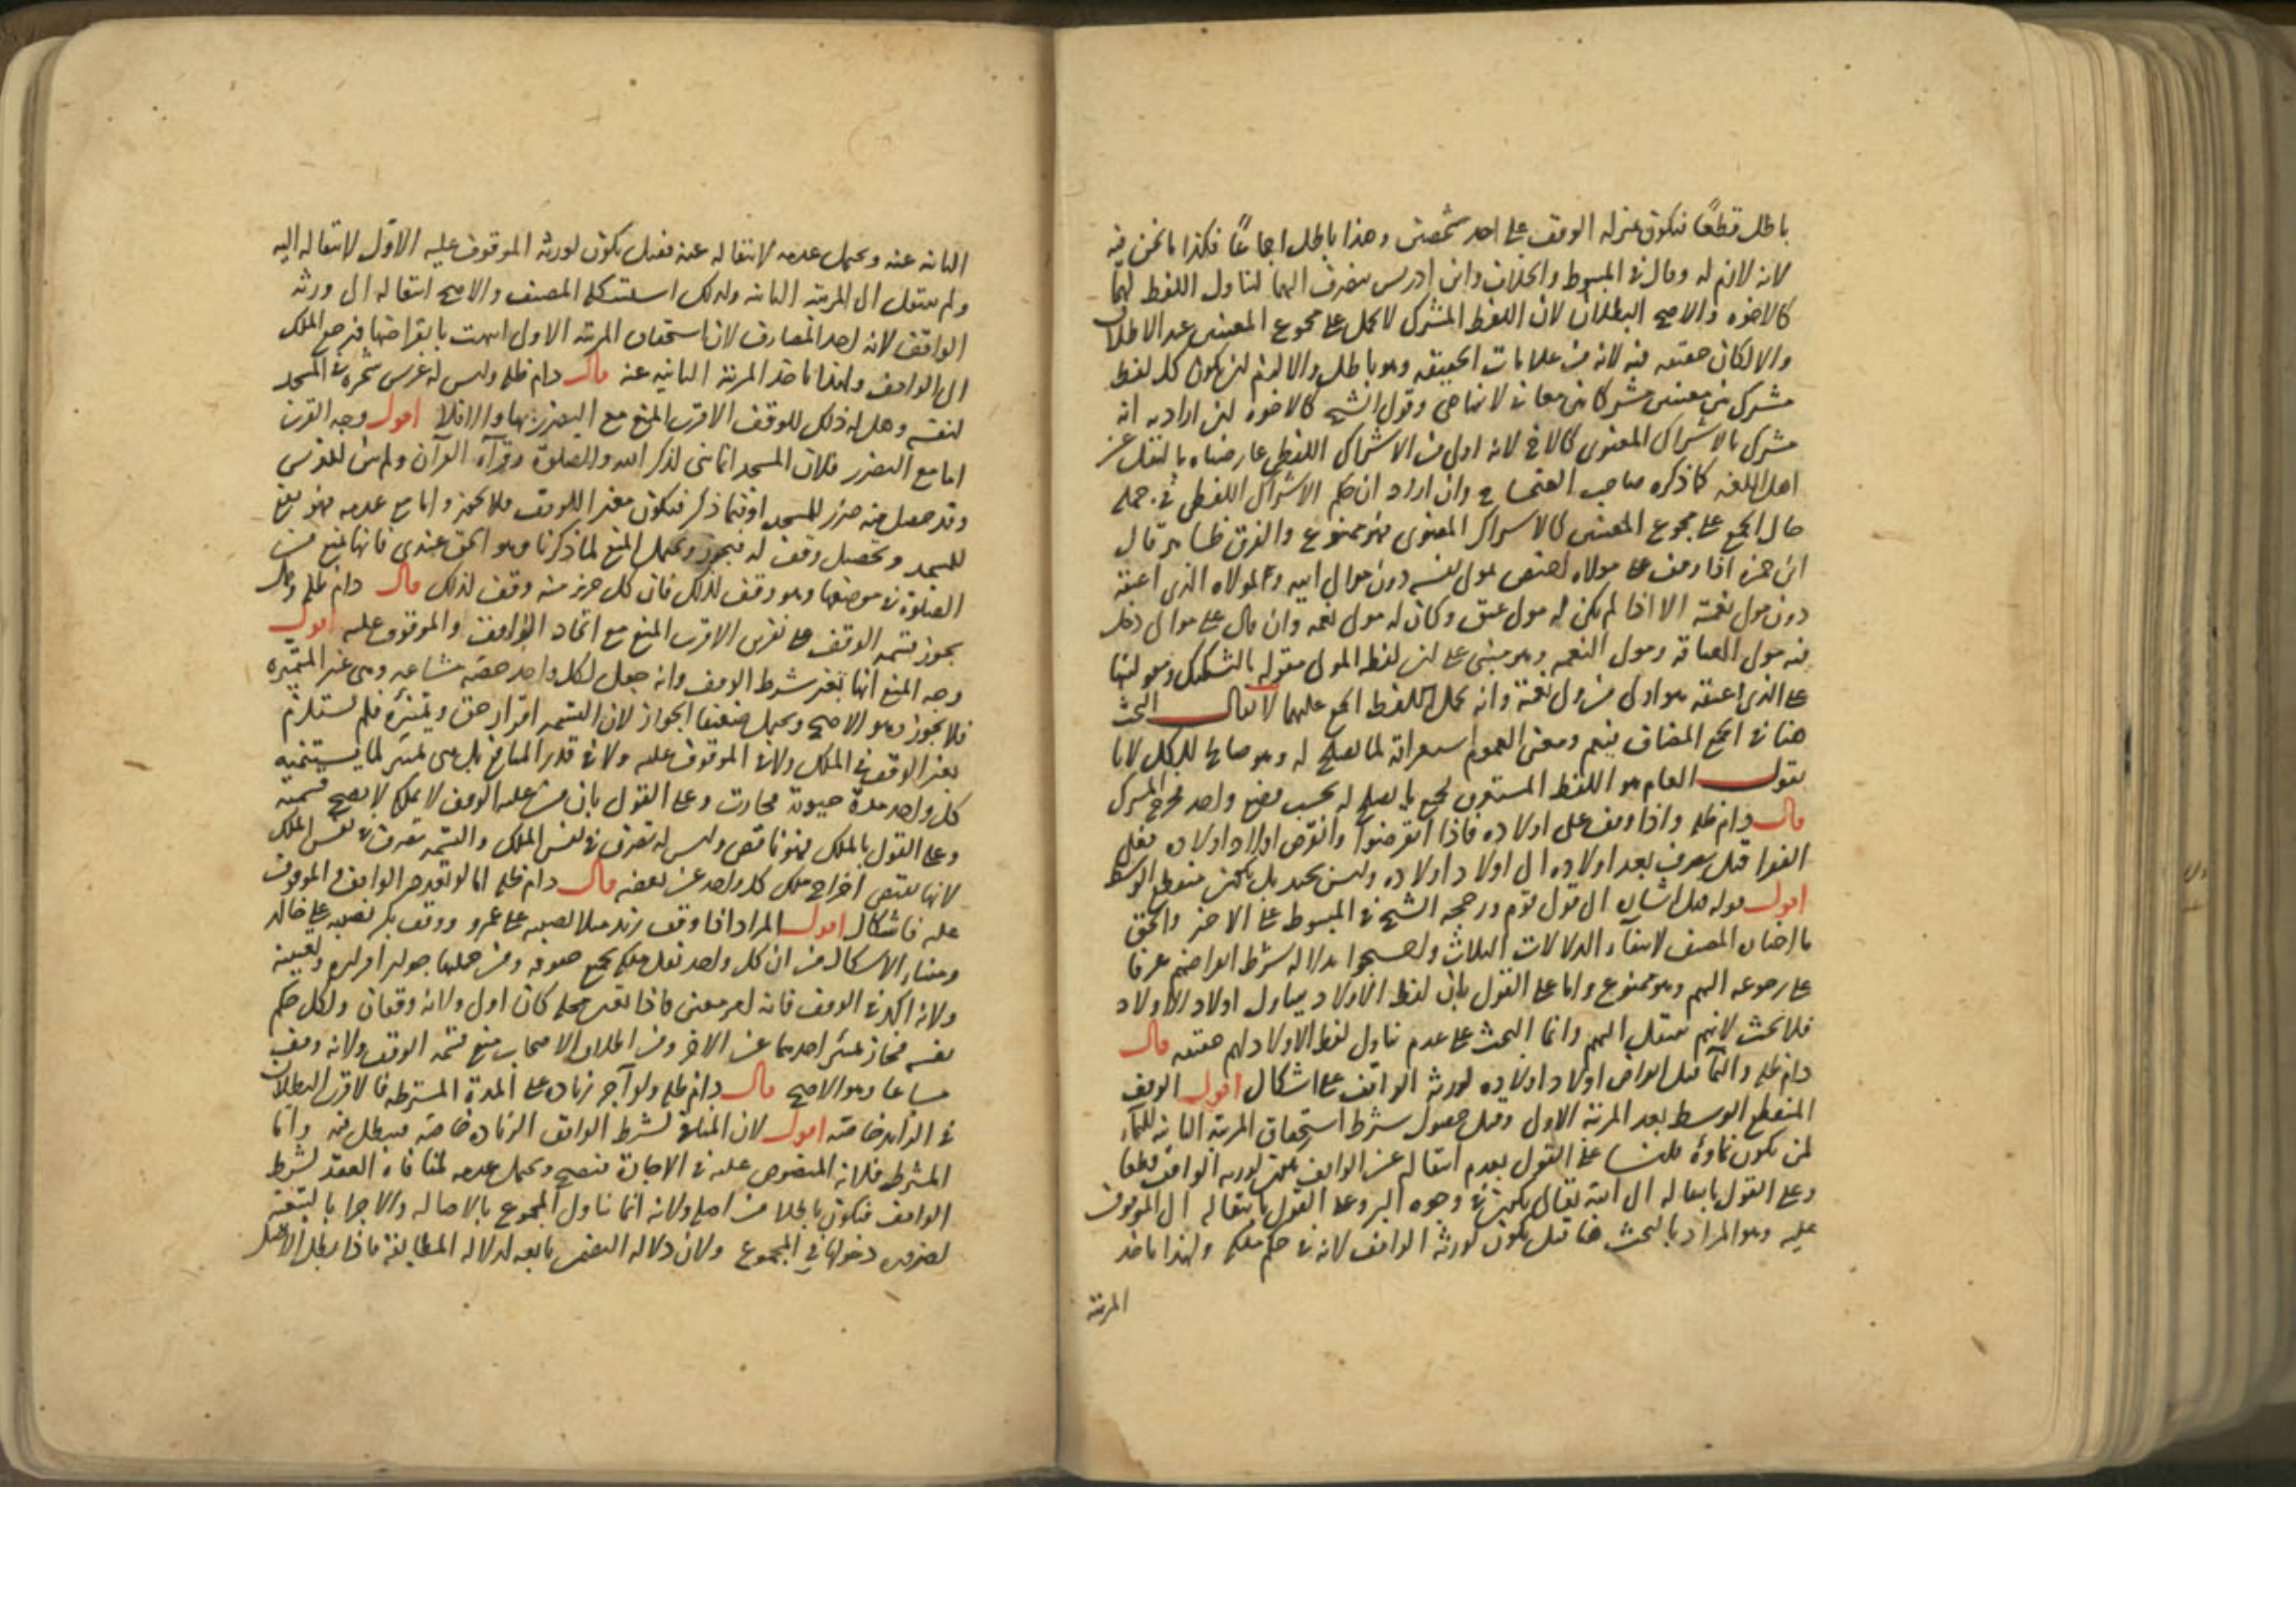 باطل قطعًا فيكون بمنزلة الوقف على احد شخصين وهذا باطل اجماعًا فكذا ما نحن فيه
لانه لازم له وقال في المبسوط والخلاف وابن ادريس ينصرف اليهما لتناول اللفظ لهما
كالاخوه والاصح البطلان لان اللفظ المشترك لا يحمل على مجموع المعنيين عند الاطلاق
والا لكان حقيقه فيه لانه من علامات الحقيقه وهو باطل والا لزم ان يكون كل لفظ
مشترك بين معنيين مشتركا بين معان لا تتناهى وقول الشيخ كالاخوه ان اراد به انه
مشترك بالاشتراك المعنوى كالاخ لانه اولى من الاشتراك اللفظى عارضناه بالنقل عن
اهل اللغه كما ذكره صاحب الصحاح وان اراد ان حكم الاشتراك اللفظى في حمله
حال الجمع على مجموع المعنيين كالاشتراك المعنوى فهو ممنوع والفرق ظاهر قال
ابن حمزه اذا وقف على مولاه اختص بمولى نفسه دون موالى ابيه وبمولاه الذى اعتقه
دون مولى نعمته الا اذا لم يكن له مولى عتق وكان له مولى نعمه وان قال على موالى دخل
فيه مولى العتاقه ومولى النعمه وهو مبنى على ان لفظه المولى مقوله بالتشكيك وهو انها
على الذى اعتقه هو اولى من ولى نعمته وانه يحمل اللفظ الجمع عليهما لا يقال البحث
هنا في الجمع المضاف فيعم ومعنى العموم استغراقه لما يصلح له وهو صالح للكل لانا
نقول العام هو اللفظ المستغرق لجميع ما يصلح له بحسب وضع واحد فخرج المشترك
قال دام ظله واذا وقف على اولاده فاذا انقرضوا وانقرض اولاد اولاده فعلى
الفقرا قيل يصرف بعد اولاده الى اولاد اولاده وليس بجيد بل يكون منقطع الوسط
اقول قوله قيل اشاره الى قول قوم ورجحه الشيخ في المبسوط على الاخر والحق
ما اختاره المصنف لانتفاء الدلالات الثلاث واحتجوا بدلاله شرط انقراضهم عرفا
على رجوعه اليهم وهو ممنوع واما على القول بان لفظ الاولاد يتناول اولاد الاولاد
فلا بحث لانهم ينتقل اليهم وانما البحث على عدم تناول لفظ الاولاد لهم حقيقه قال
دام ظله والنمآ قبل انقراض اولاد اولاده لورثة الواقف على اشكال اقول الوقف
المنقطع الوسط بعد المرتبة الاولى وقبل حصول شرط استحقاق المرتبة الثانيه للنمآء
لمن يكون نماؤه قلنا على القول بعدم انتقاله عن الواقف يكون لورثه الواقف قطعا
وعلى القول بانتقاله الى الله تعالى يكون في وجوه البر وعلى القول بانتقاله الى الموقوف
عليه وهو المراد بالبحث هنا قيل يكون لورثة الواقف لانه في حكم ملكه ولهذا ياخذ
المرتبة
الثانيه عنه ويحتمل عدمه لانتقاله عنه فقيل يكون لورثة الموقوف عليه الاوّل لانتقاله اليه
ولم ينتقل الى المرتبه الثانيه ولذلك استشكله المصنف والاصح انتقاله الى ورثه
الواقف لانه احد المصارف لان استحقاق المرتبه الاولى انتهت بانقراضها فيرجع الملك
الى الواقف ولهذا ياخذ المرتبة الثانيه عنه قال دام ظله وليس له غرس شجره في المسجد
لنفسه وهل له ذلك للوقف الاقرب المنع مع التضرر بها والا فلا اقول وجه القرب
اما مع التضرر فلان المسجد انما بنى لذكر الله والصلوة وقرآة القرآن ولم يبن للغرس
وقد حصل منه ضرر للمسجد او فيما ذكر فيكون مغير اللوقف فلا يجوز واما مع عدمه فهو نفع
للمسجد وتحصيل وقف له فيجوز ويحتمل المنع لما ذكرنا وهو الحق عندى فانها تمنع من
الصلوة في موضعها وهو وقف لذلك فان كل جزء منه وقف لذلك قال دام ظله وهل
يجوز قسمه الوقف على نفرين الاقرب المنع مع اتحاد الواقف والموقوف عليه اقول
وجه المنع انها تغير شرط الوقف وانه جعل لكل واحد حصّه مشاعه وهى غير المتميزه
فلا يجوز وهو الاصح ويحتمل ضعيفا الجواز لان القسمه افراز حق وتميّزه فلم تستلزم
تغير الوقف في الملك ولا في الموقوف عليه ولا في قدر المنافع بل هى تميز لما يستحقه
كل واحد مدة حيوته فجازت وعلى القول بان من عليه الوقف لا يملك لا يصح قسمته
وعلى القول بالملك فهو ناقص وليس له تصرف في نفس الملك والقسمه تصرف في نفس الملك
لانها تقتضى اخراج ملك كل واحد عن بعضه قال دام ظله اما لو تعدد الواقف والموقوف
عليه فاشكال اقول المراد اذا وقف زيد مثلا نصيبه على عمرو ووقف بكر نصيبه على خالد
ومنشاء الاشكال من ان كل واحد نقل ملكه بجميع حقوقه ومن جملتها جواز افرازه وتعيينه
ولانه اكد في الوقف فانه امر معنى فاذا تعدد محله كان اولى ولانه وقفان ولكل حكم
نفسه فجاز تميز احدهما عن الاخر ومن اطلاق الاصحاب منع قسمه الوقف ولانه وقف
مشاعا وهو الاصح قال دام ظله ولو آجر زياده على المدة المشترطه فالاقرب البطلان
في الزايد خاصّه اقول لان المنافى لشرط الواقف الزياده خاصّه فيبطل فيه واما
المشترط فلانه المنصوص عليه في الاجارة فيصح ويحتمل عدمه لمنافاه العقد لشرط
الواقف فيكون باطلا من اصله ولانه انما تناول المجموع بالاصاله والاجزا بالتبعيّة
لضروره دخولها في المجموع ولان دلاله التضمن تابعه لدلاله المطابقه فاذا بطل الاصل